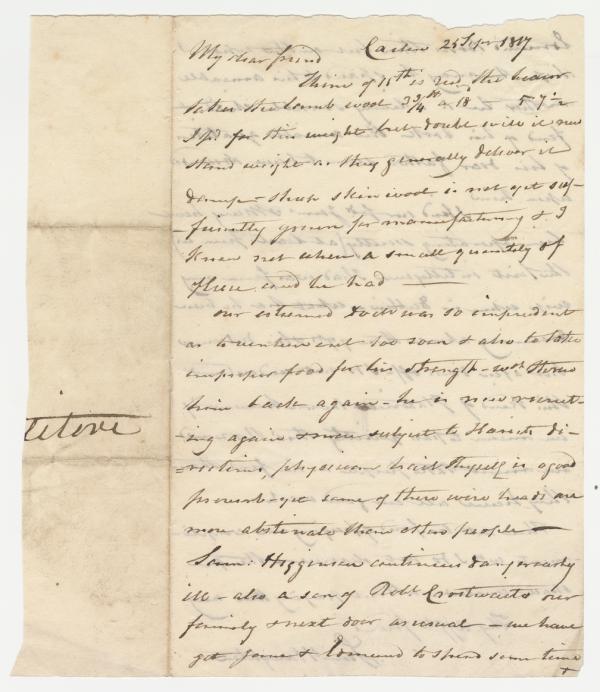 My dear friend Easton 25 Sepr 1817
Thine of 15th is recd, the bearer
takes the lamb wool 3 3/4 lb @ 18d 5 7 1/2
I pd for this weight but doubt will it now
stand weight as they generally deliver it
damp - sheep skin wool is not yet suf-
-ficiently grown for manufacturing & I
know not where a small quantity of
fleece could be had
our esteemed Doctr was so imprudent
as to venture out too soon & also to take
improper food for his strength - wch threw
him back again - he is now recruit-
-ing again & more subject to Harriets di-
-rections, physician heal thyself is a good
proverb - yet some of these were heads are
more obstinate than other people -
Saml: Higginson continues dangerously
ill - also a son of Robt Crostwaits our
family & next door as usual - we have
got Jane & Edmund to spend some time
telove